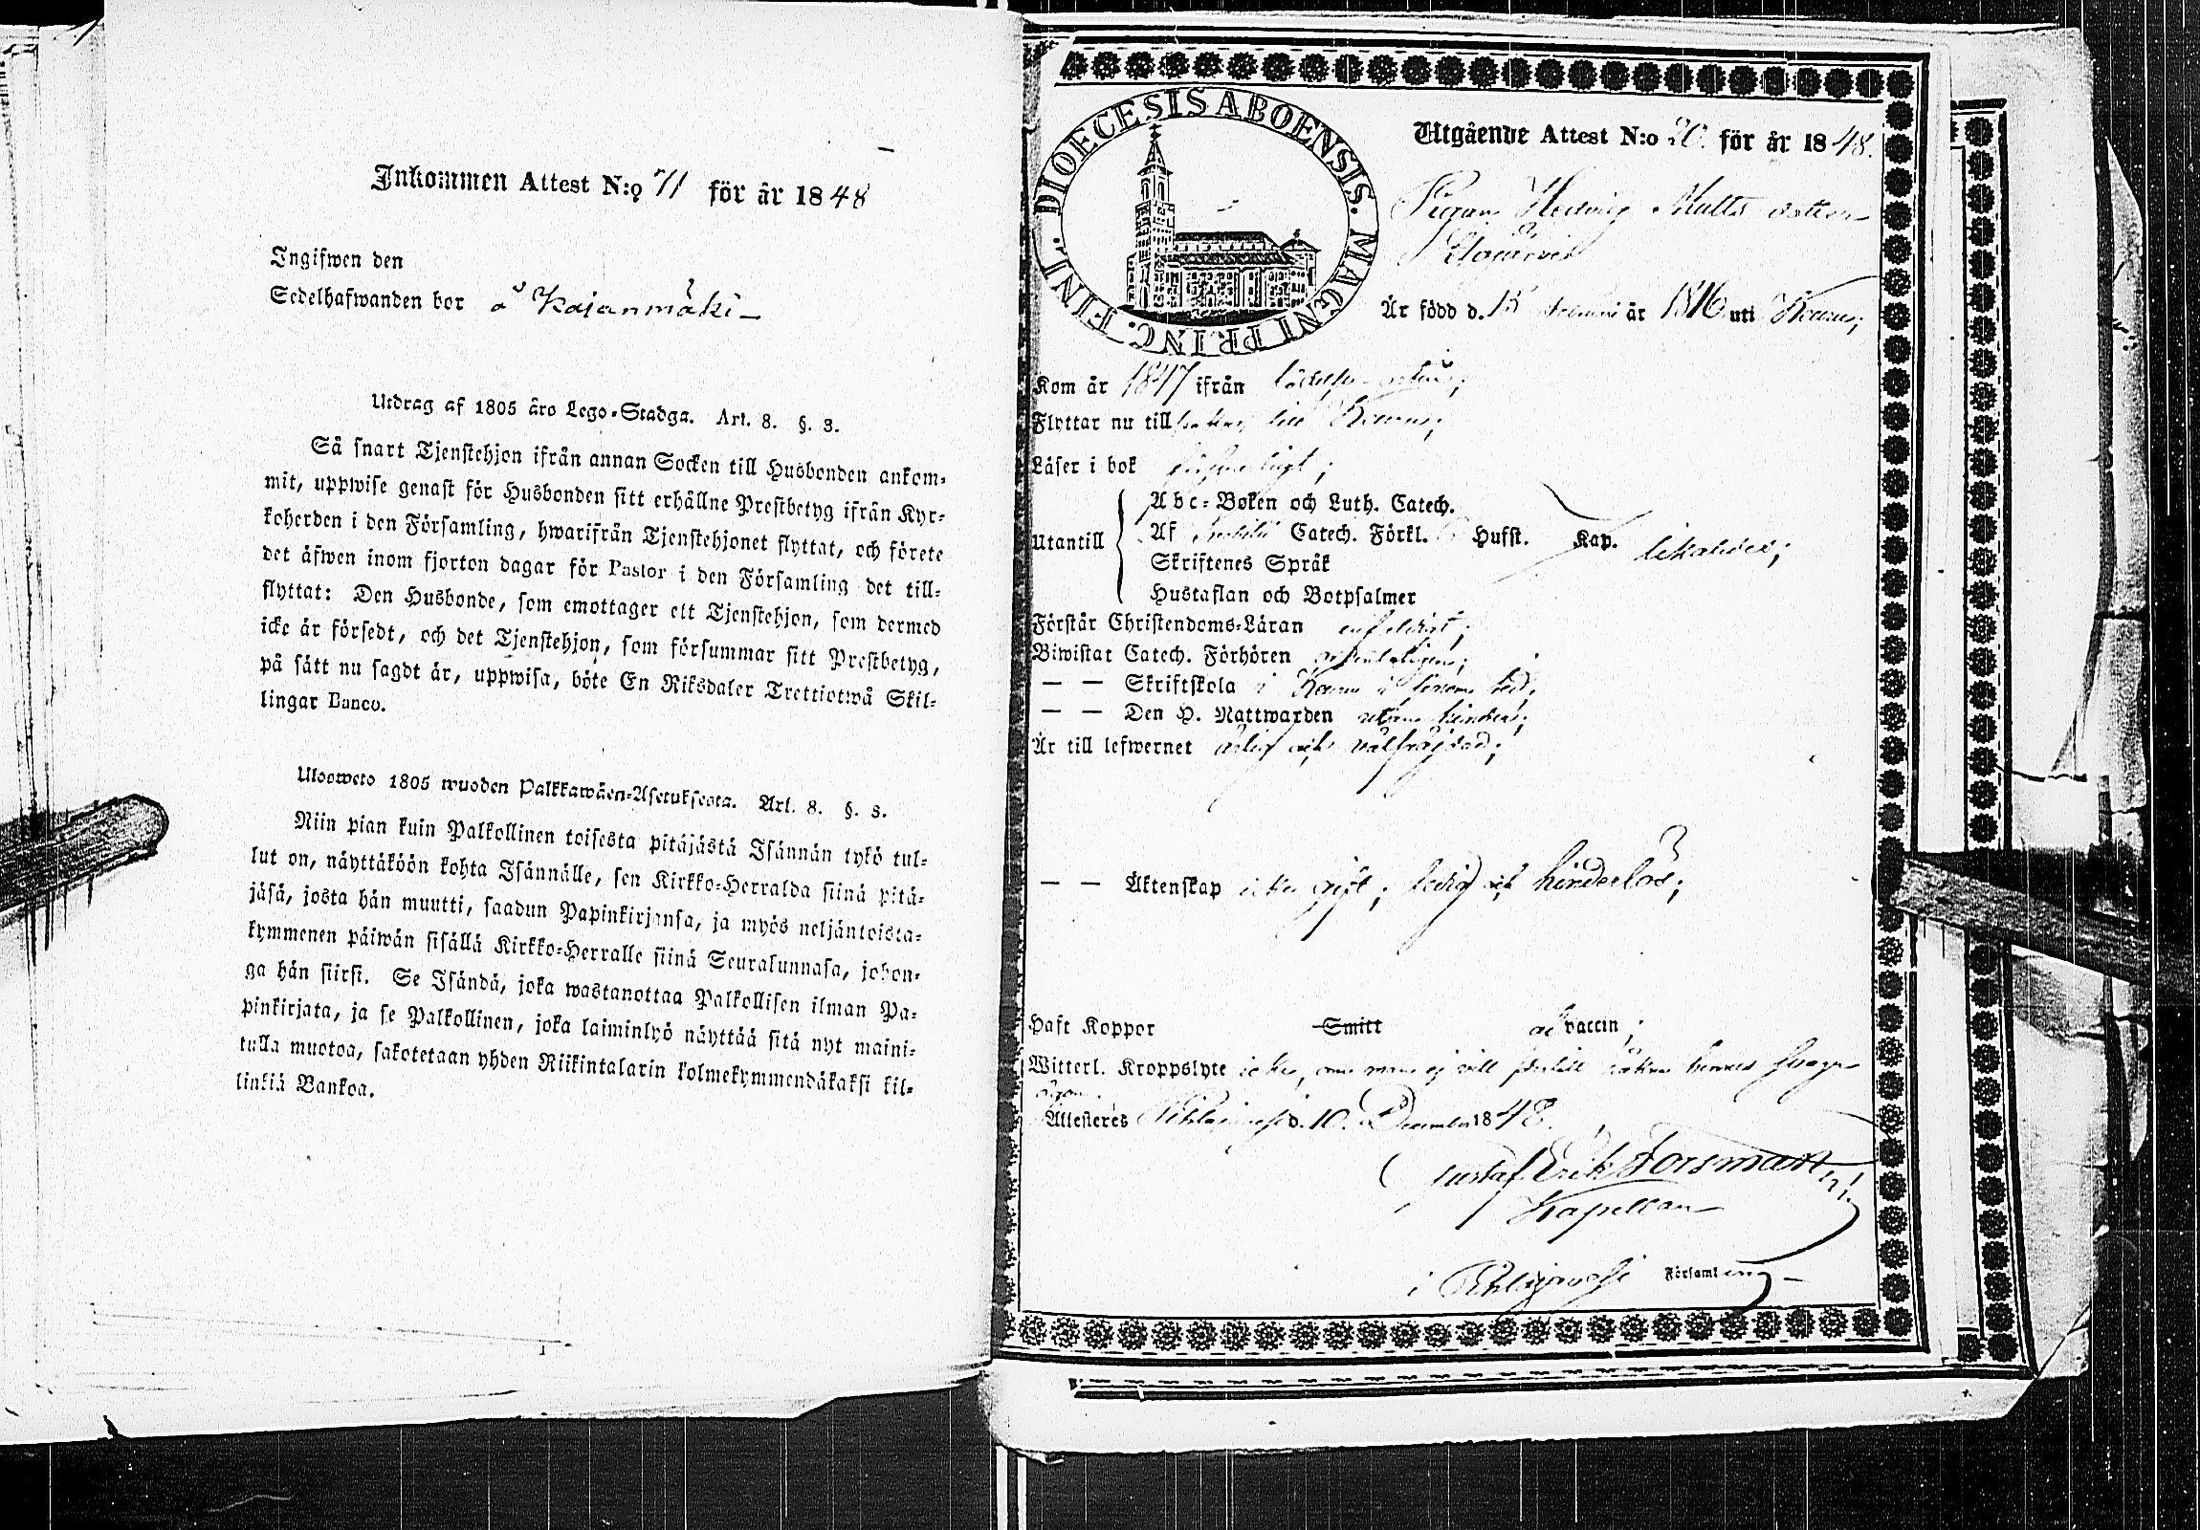 Inkommen Attest N:o 71 för år 1848
Ingifwen den
Sedelhafwanden bor å Kajanmäki
Utdrag af 1805 åro Lego-Stadga. Art. 8. §. 3.
Så snart Tjenstehjon ifrån annan Socken till Husbonden ankom-
mit, uppwise genast för Husbonden sitt erhållne Prestbetyg ifrån Kyr-
koherden i den Församling, hwarifrån Tjenstehjonet flyttat, och förete
det äfwen inom fjorton dagar för Pastor i den Församling det till-
flyttat: Den Husbonde, som emottager ett Tjenstehjon, som dermed
icke är försedt, och det Tjenstehjon, som försummar sitt Prestbetyg,
på sätt nu sagdt är, uppwisa, böte En Riksdaler Trettiotwå Skil-
lingar Banco.
Uloosweto 1805 wuoden Palkkawäen-Asetuksesta. Art. 8. §. 3.
Niin pian kuin Palkollinen toisesta pitäjästä Isännän tykö tul-
lut on, näyttäköön kohta Isännälle, sen Kirkko-Herralda siinä pitä-
jäsä, josta hän muutti, saadun Papinkirjansa, ja myös neljäntoista-
kymmenen päiwän sisällä Kirkko-Herralle siinä Seurakunnasa, johon-
ga hän siirsi. Se Isändä, joka wastanottaa Palkollisen ilman Pa-
pinkirjata, ja se Palkollinen, joka laiminlyö näyttää sitä nyt maini-
tulla muotoa, sakotetaan yhden Riikintalarin kolmekymmendäkaksi kil-
linkiä Bankoa.
DIOECESIS ABOENSIS. MAGNI PRINC. FINL.
Utgående Attest N:o 20. för år 1848.
Pigan Hedvig Matts dotter
Är född d. 15 år 1816 uti Keuru;
Kom år 1847 ifrån
Flyttar nu till Keuru;
Läser i bok
Utantill
Abc-Boken och Luth. Catech.
Af Catech. Förkl. Hufst. Kap.
Skriftenes Språk
Hustaflan och Botpsalmer
Förstår Christendoms-Läran enfeldigt;
Biwistat Catech. Förhören
— — Skriftskola i Keuru i
— — Den H. Nattwarden utan hinder;
Är till lefwernet ärlig och välfräjdad;
— — Äktenskap icke gift; ledig och hinderlös;
Haft Koppor Smitt vaccin;
Witterl. Kroppslyte icke, om man ej vill hennes
ögon.
Attesteres Pihlajavesi d. 10. December 1848.
Gustaf Erik Forsman
Kapellan
i Pihlajavesi Församling